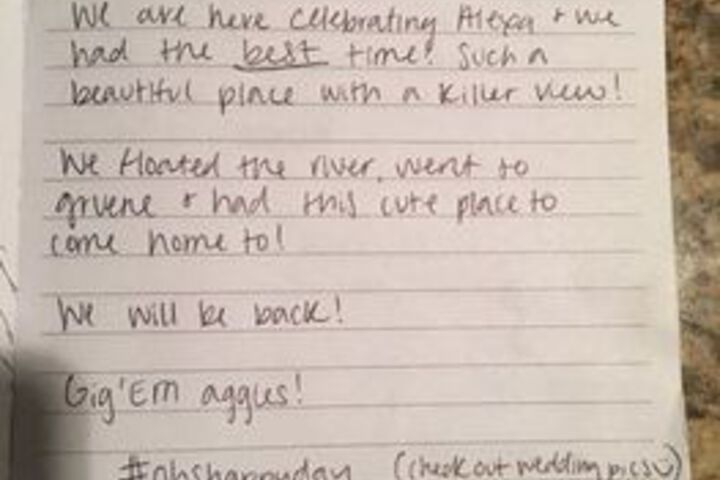 We are here celebrating Alexa + we
had the best time! Such a
beautiful place with a killer view!
We floated the river, went to
gruene + had this cute place to
come home to!
We will be back!
Gig'Em aggies!
#ohshappyday (check out wedding pics☺)